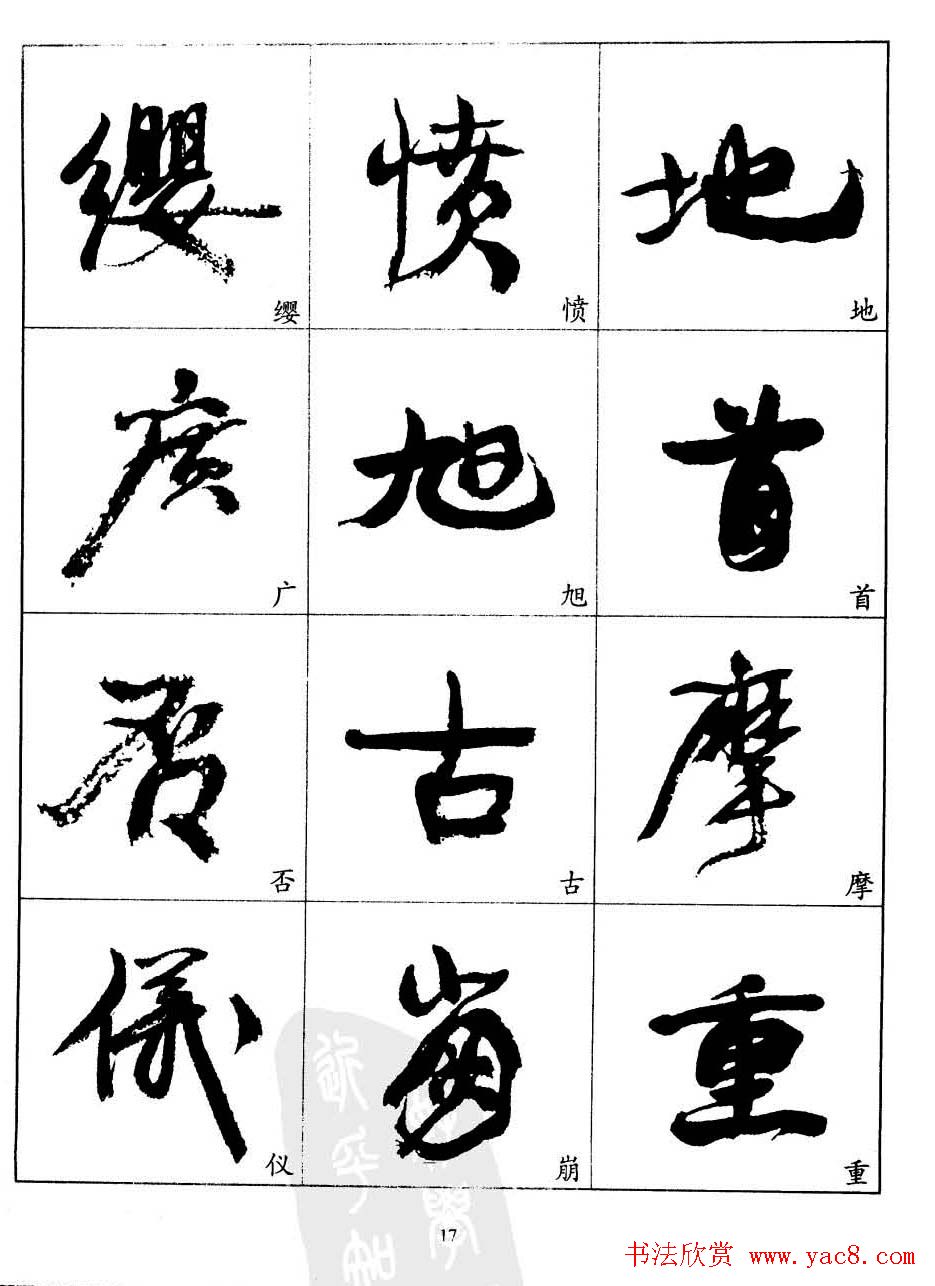 纓 憤 地
缨 愤 地
廣 旭 首
广 旭 首
否 古 摩
否 古 摩
儀 崩 重
仪 崩 重
17
书法欣赏 www.yac8.com